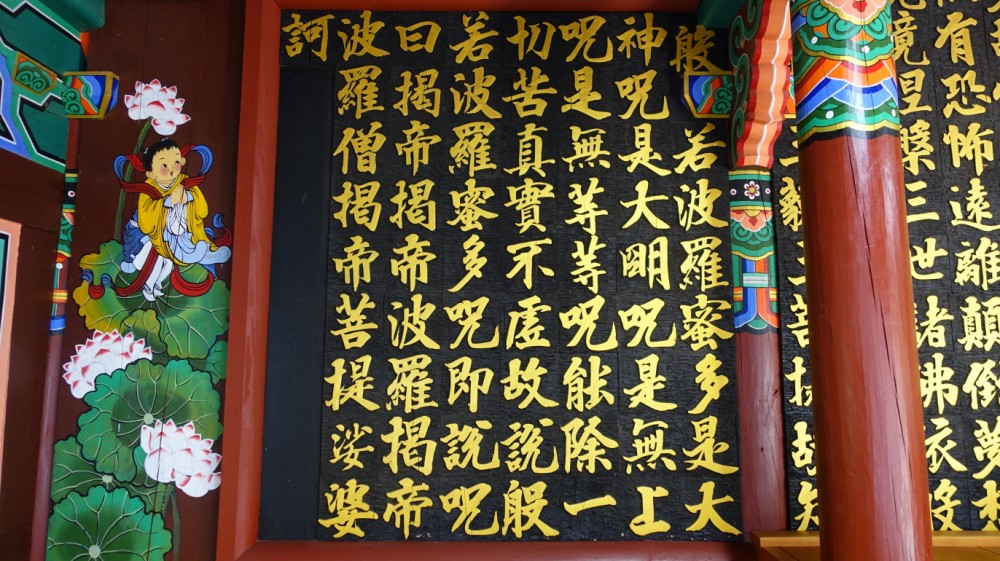 有恐怖遠離顛倒夢
槃三世諸佛
般若波羅蜜多是大
神呪是大明呪是無上
呪是無等等呪能除一
切苦真實不虛故說般
若波羅蜜多呪即說呪
曰揭帝揭帝波羅揭帝
波羅僧揭帝菩提娑婆
訶